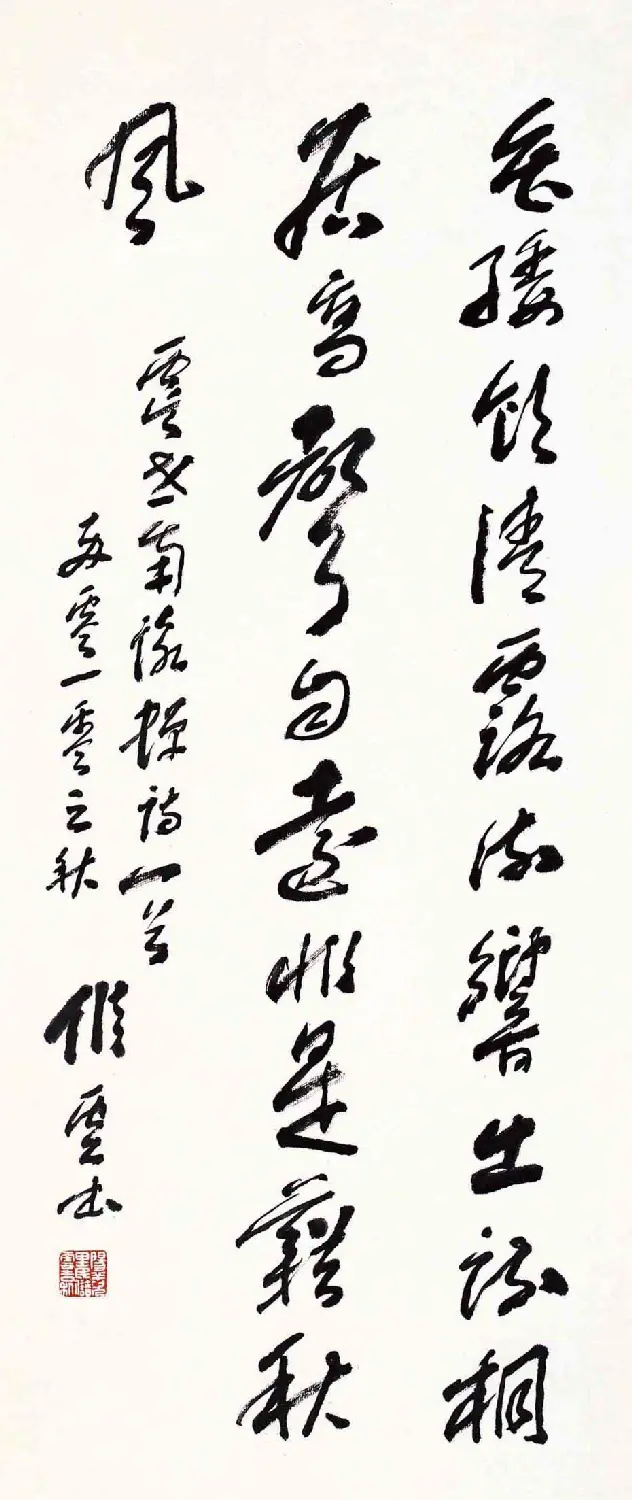 垂緌飲清露流響出疏桐
居高聲自遠非是藉秋
風
虞世南詠蟬詩一首
零一零之秋
書